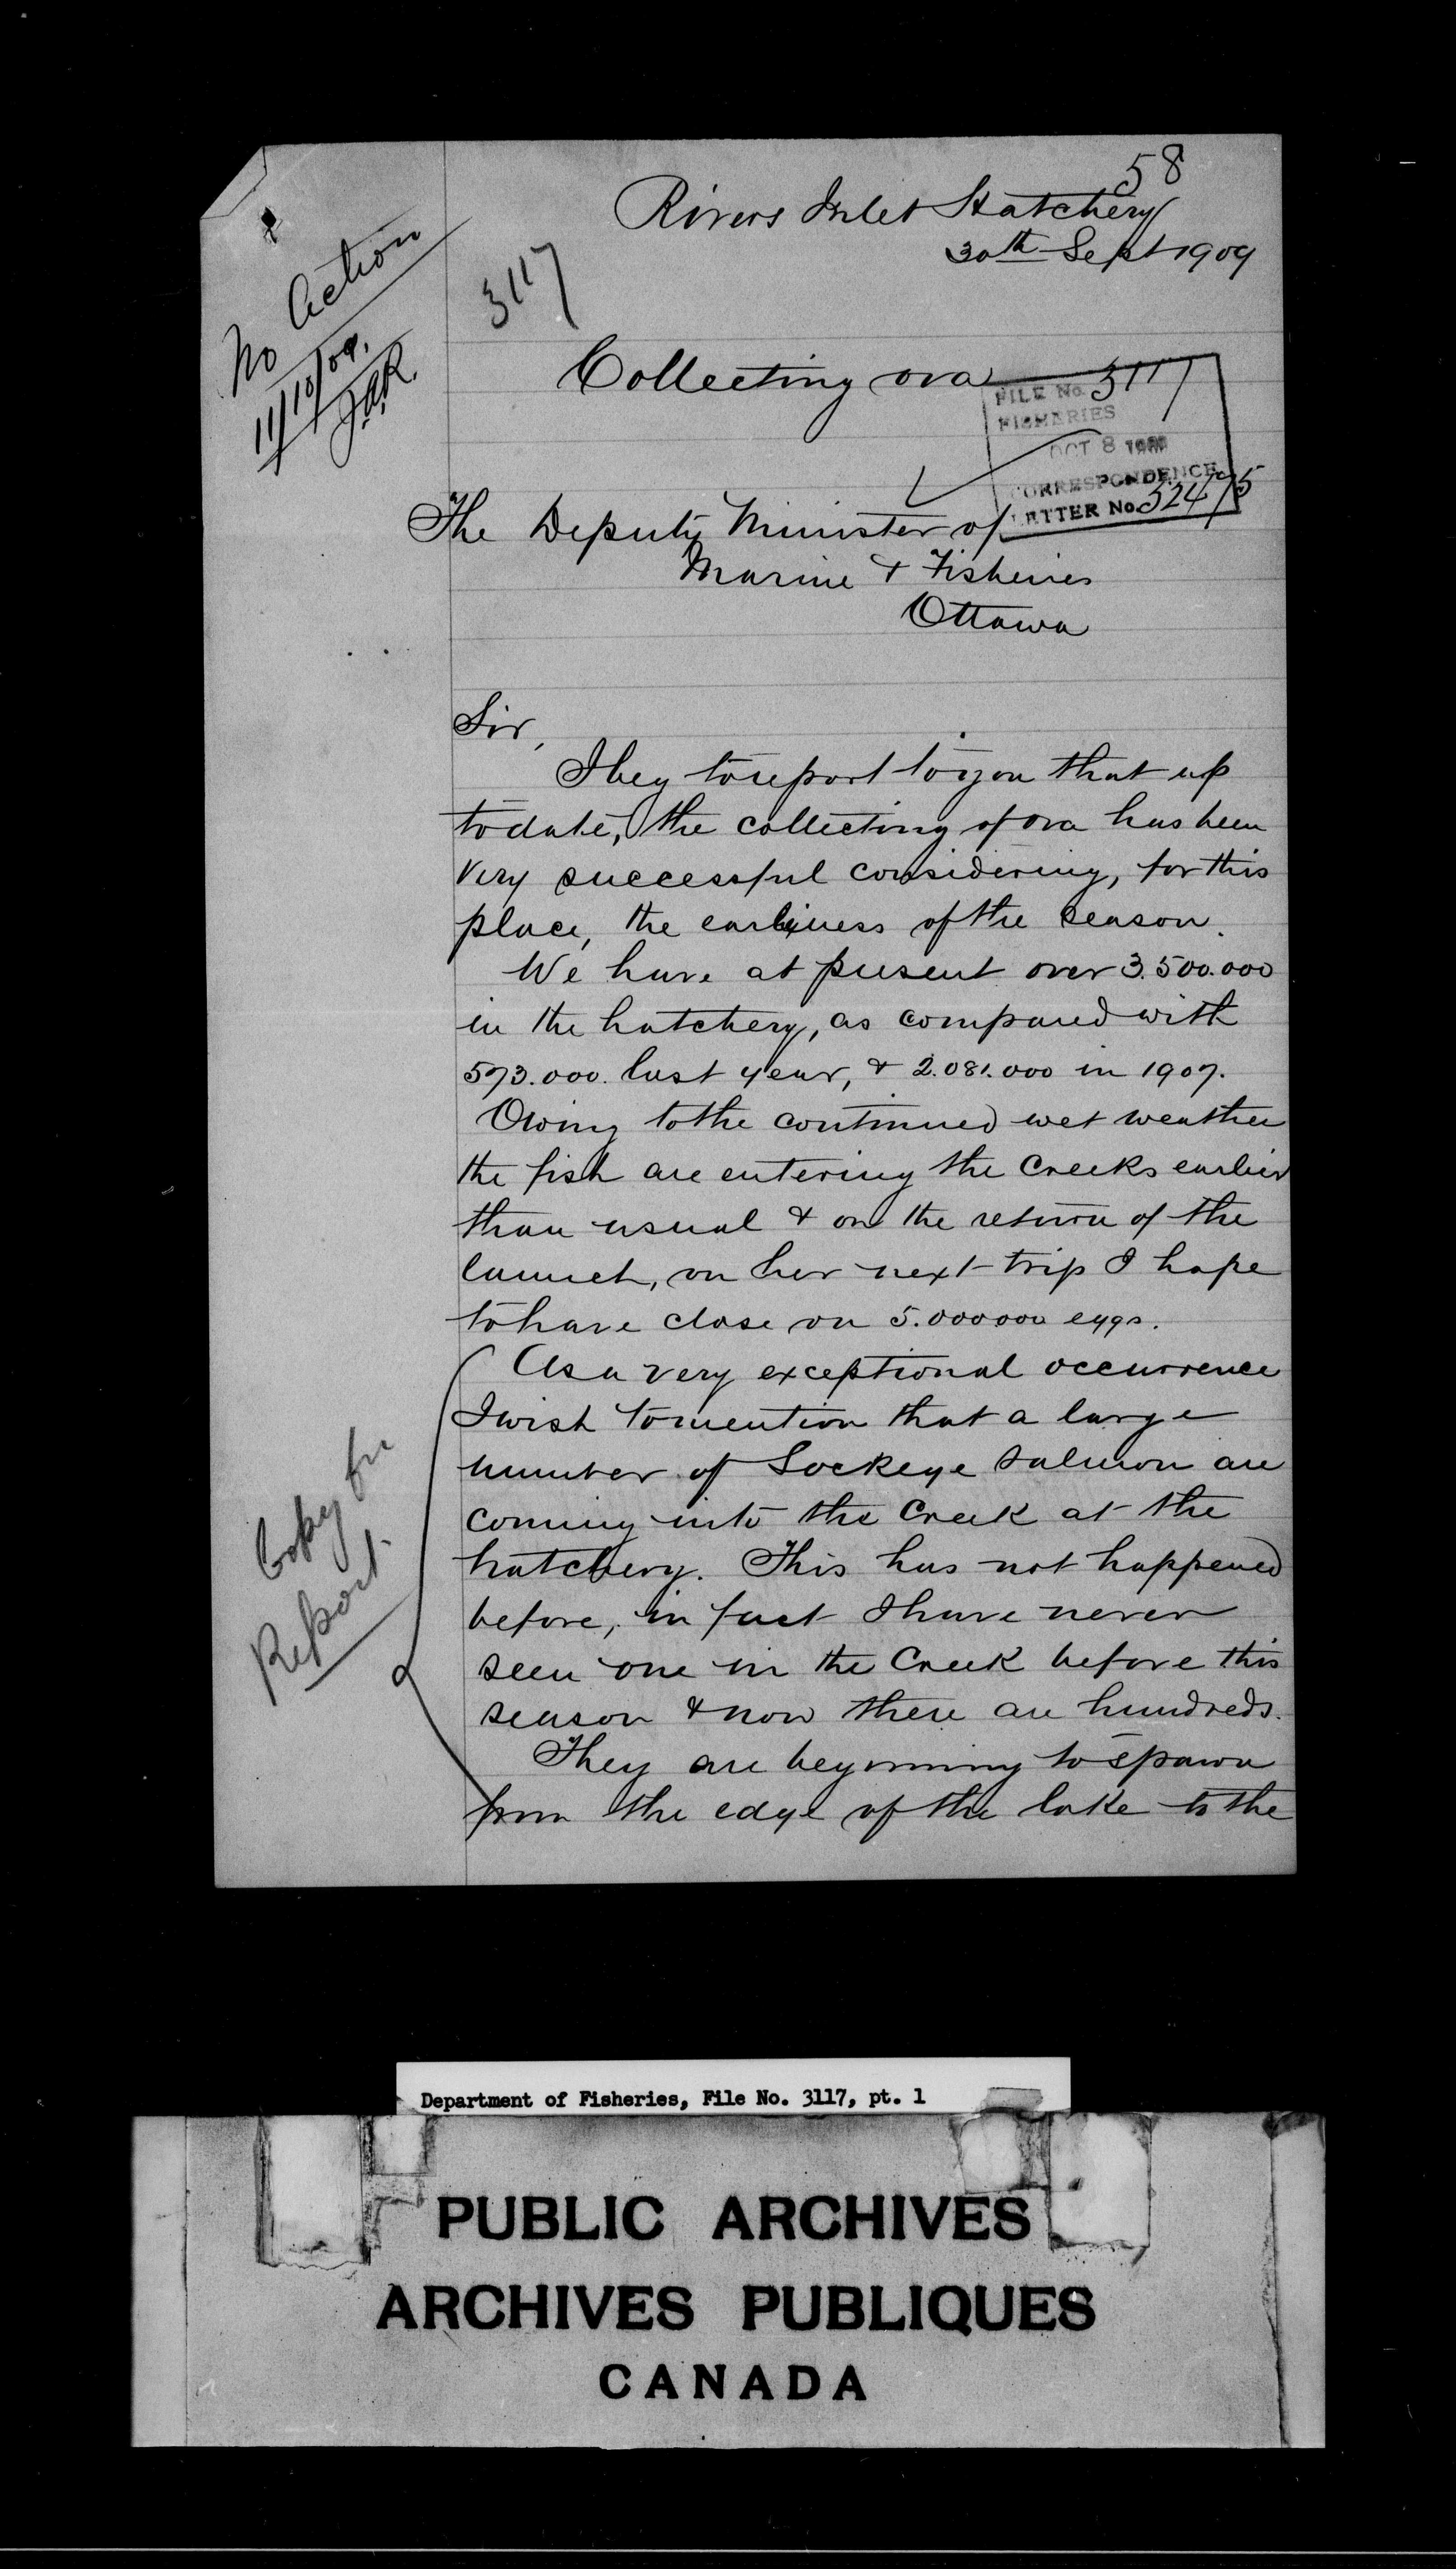 58
Rivers Inlet Hatchery
30th Sept 1909
No Action
11/10/09.
3117
Collecting ova
FILE No. 3117
FISHERIES
OCT 8
CORRESPONDENCE
LETTER No. 52475
The Deputy Minister of
Marine & Fisheries
Ottawa
Sir,
I beg to report to you that up
to date, the collecting of ova has been
very successful considering, for this
place, the earliness of the season.
We have at present over 3.500.000
in the hatchery, as compared with
573.000. last year, & 2.081.000 in 1907.
Owing to the continued wet weather
the fish are entering the creeks earlier
than usual & on the return of the
launch, on her next trip I hope
to have close on 5.000000 eggs.
As a very exceptional occurrence
I wish to mention that a large
number of Sockeye salmon are
coming into the Creek at the
hatchery. This has not happened
before, in fact I have never
seen one in the Creek before this
season & now there are hundreds.
They are beginning to spawn
from the edge of the lake to the
Copy for
Report.
Department of Fisheries, File No. 3117, pt. 1
PUBLIC ARCHIVES
ARCHIVES PUBLIQUES
CANADA